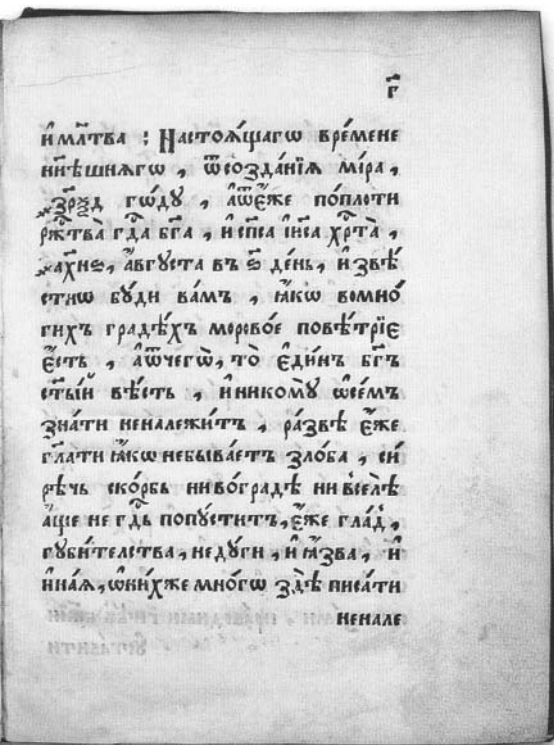 г҃
и҆ мл҃тва : Настоѧ́щагѡ вре́мене
нн҃ѣшнѧгѡ , ѿсозда́нїѧ мі́ра ,
҂зрѯд гѡ́ду , а҆ѿє҆́же попло́ти
рж҃тва̀ гдⷭ҇а бг҃а , и҆ сп҃са і҆и҃са хрⷭ҇та̀ ,
҂ахн҃ѕ , а҆́вгꙋста въ ѕ҃ де́нь , и҆звѣ́
стнѡ бꙋ́ди ва́мъ , ꙗ҆́кѡ вомно́
гихъ градѣ́хъ морово́е повѣ́трїе
є҆́сть , а҆ѿчегѡ̀ , то̀ є҆ди́нъ бг҃ъ
ст҃ы́й вѣ́сть , и҆никомꙋ̀ ѡ҆се́мъ
зна́ти ненадлежи́тъ , ра́звѣ є҆́же
гл҃ати ꙗ҆́кѡ небыва́етъ ѕло́ба , си́
рѣчь ско́рбь ниво́градѣ нивселѣ̀
а҆́ще не гдⷭ҇ь попꙋ́ститъ , є҆́же гла́д ,
гꙋби́телства , недꙋ́ги , и҆ ꙗ҆́зва , и҆
и҆на́ѧ , ѡ҆ни́хже мно́гѡ здѣ̀ писа́ти
ненале